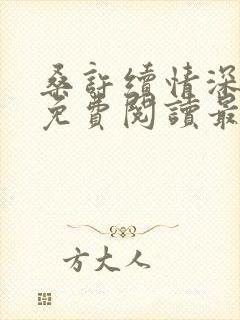 桑許續情深
免費閱讀最
方大人